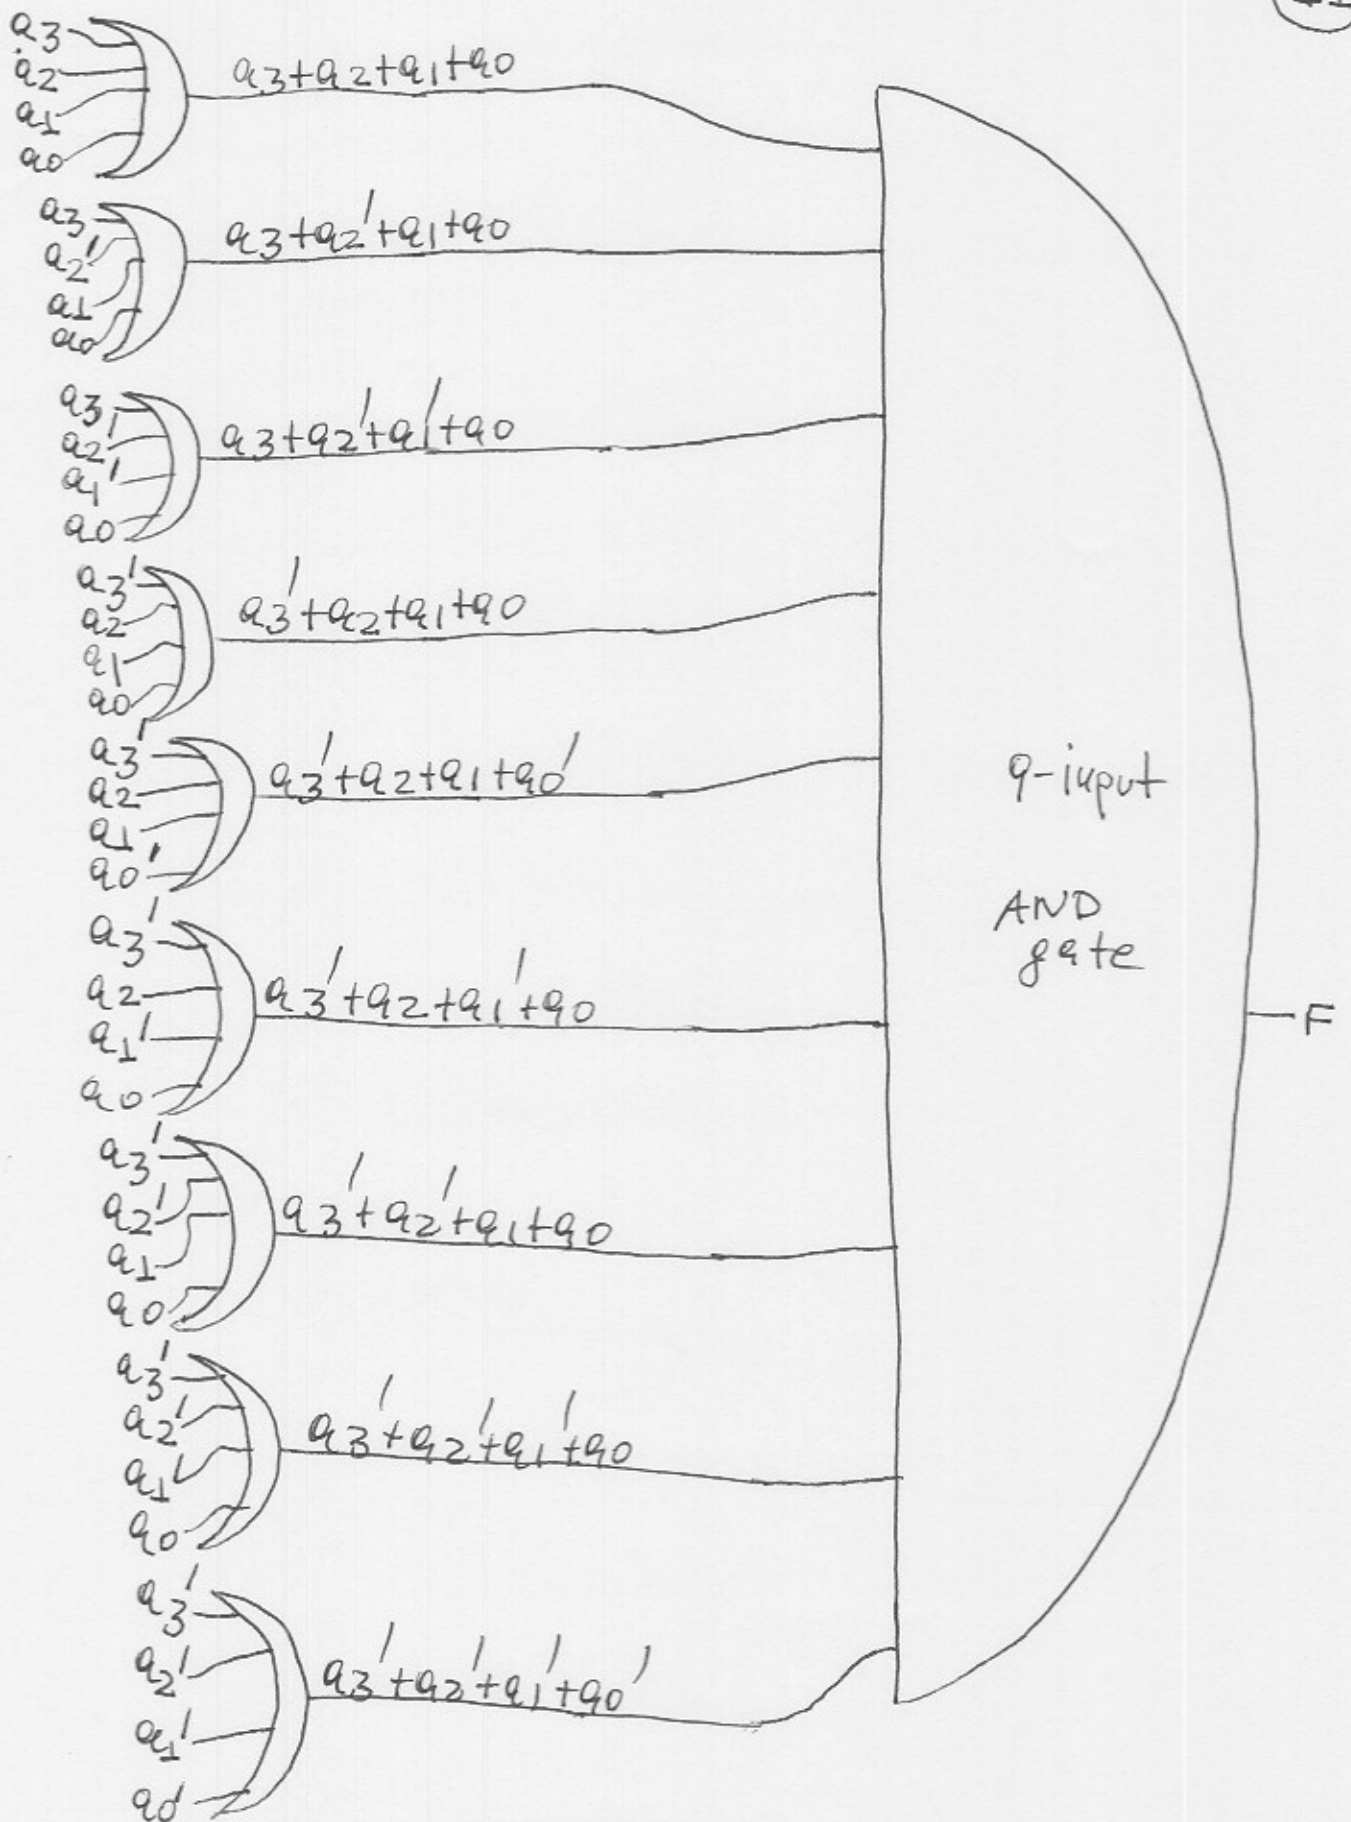 a3
a2
a1
a0
a3+a2+a1+a0
a3
a2'
a1
a0
a3+a2'+a1+a0
a3
a2'
a1'
a0
a3+a2'+a1'+a0
a3'
a2
a1
a0
a3'+a2+a1+a0
a3'
a2
a1
a0'
a3'+a2+a1+a0'
9-input
AND
gate
a3'
a2
a1'
a0
a3'+a2+a1'+a0
F
a3'
a2'
a1
a0
a3'+a2'+a1+a0
a3'
a2'
a1'
a0
a3'+a2'+a1'+a0
a3'
a2'
a1'
a0'
a3'+a2'+a1'+a0'